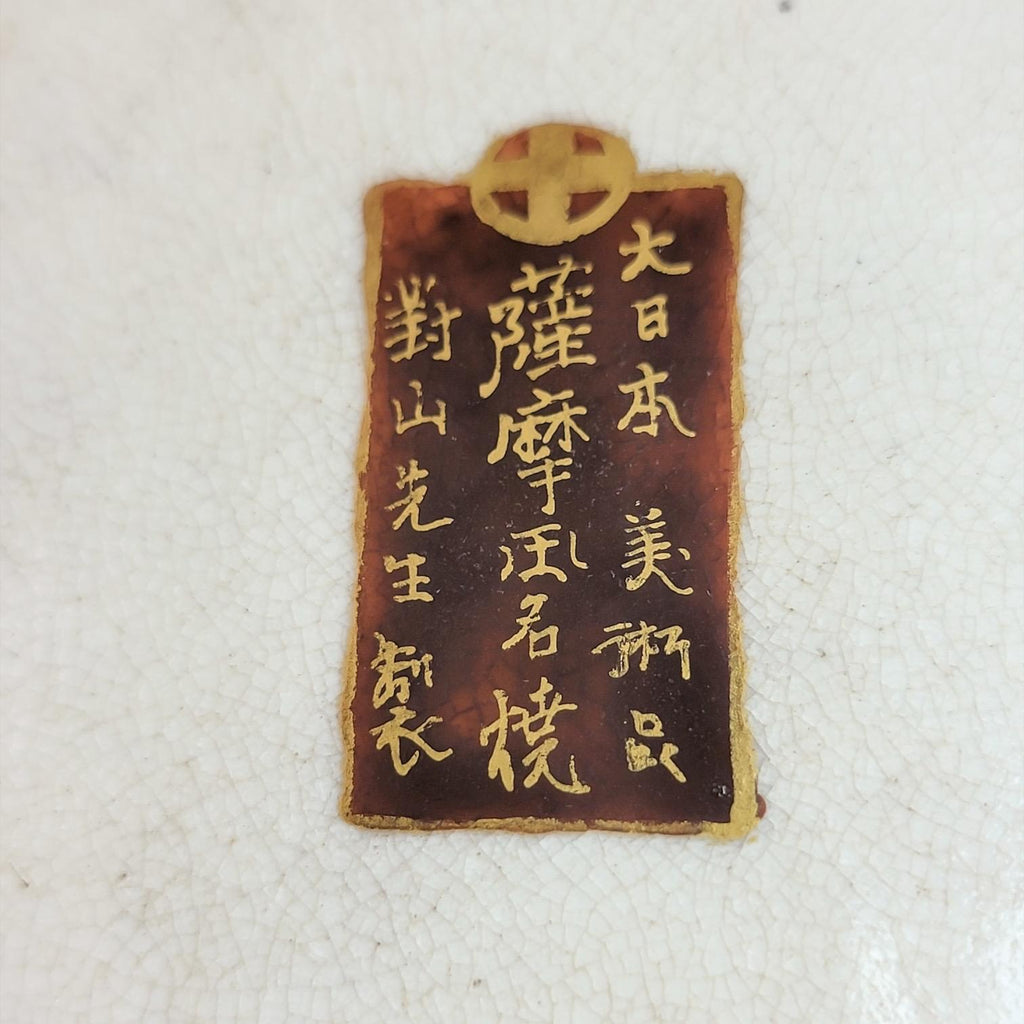 大日本 美術品
薩摩 名燒
對山先生 製